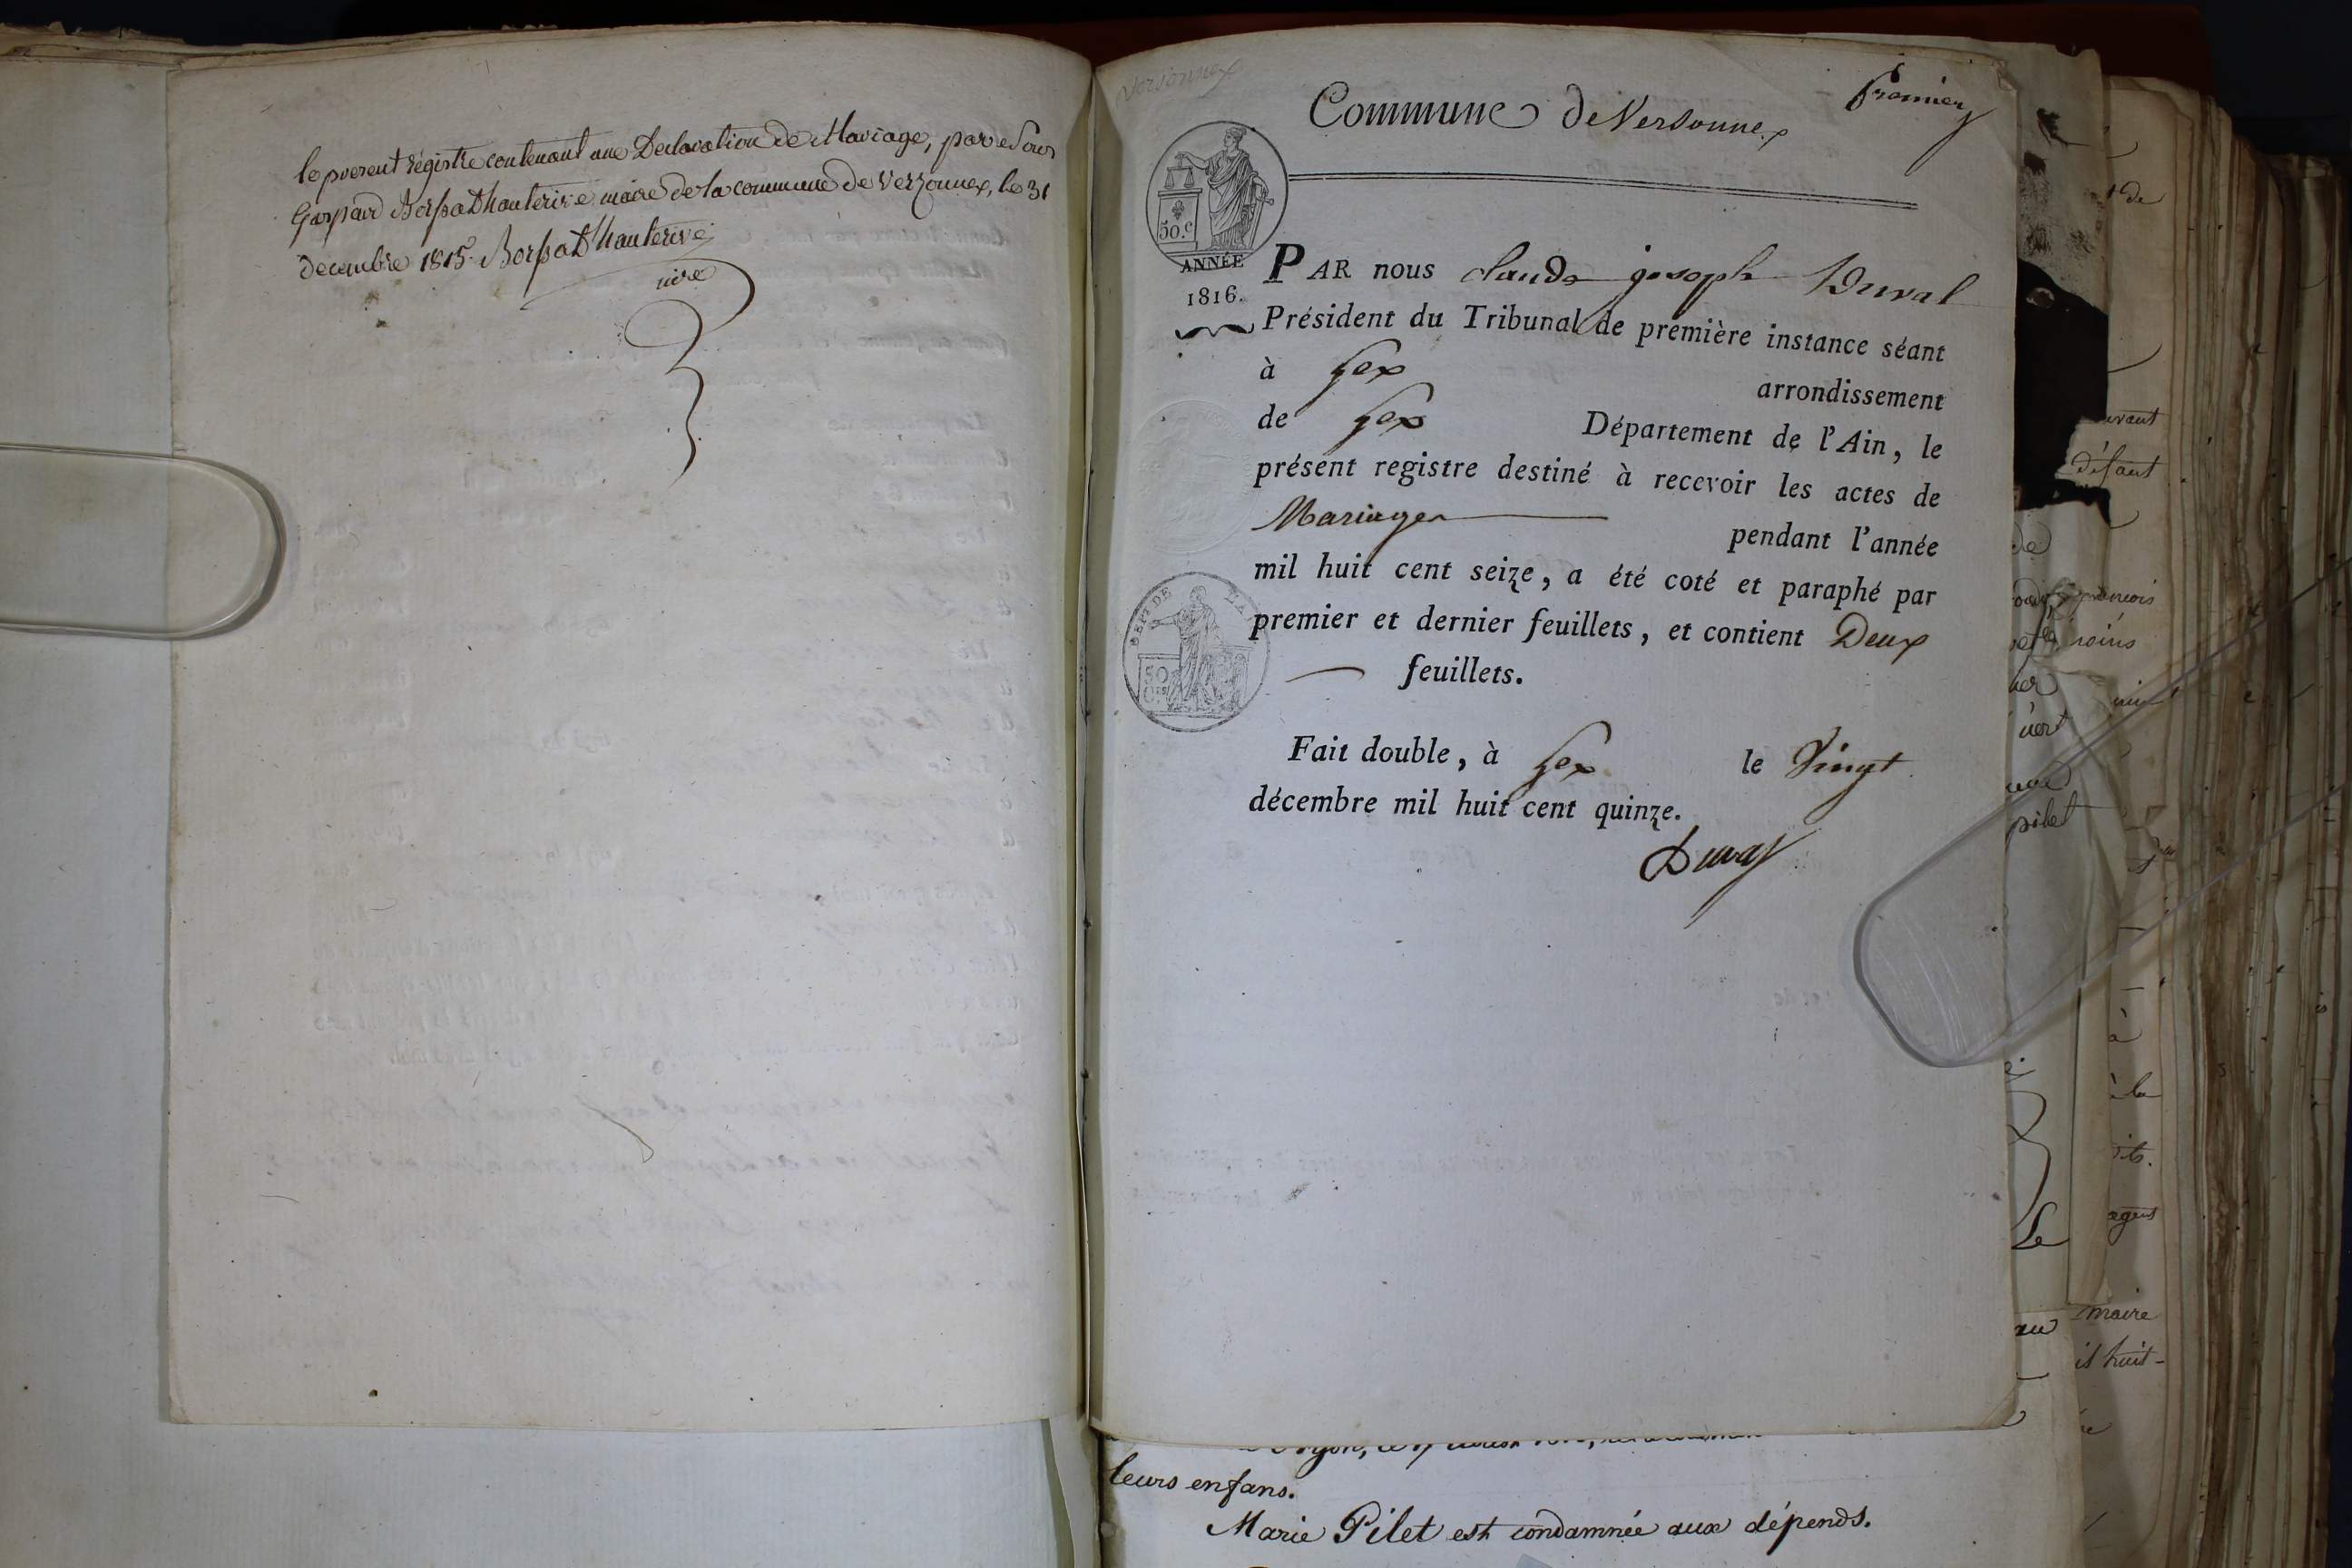 le present régistre contenant une Declaration de Mariage, par
Gaspard Borssat d'hauterive maire de la commune de Verzonnex, le 31
decembre 1815. Borssat d'hauterive
Versonnex
Commune de Versonnex
premier
50.c
ANNÉE
1816.
PAR nous claude joseph Duval
Président du Tribunal de première instance séant
à Gex arrondissement
de Gex Département de l'Ain, le
présent registre destiné à recevoir les actes de
Mariages pendant l'année
mil huit cent seize, a été coté et paraphé par
premier et dernier feuillets, et contient Deux
feuillets.
DEPT DE L'AIN
50
Fait double, à Gex le Vingt
décembre mil huit cent quinze.
Duval
leurs enfans.
Marie Pilet est condamnée aux dépends.
défaut
pilet
à la
Le
maire